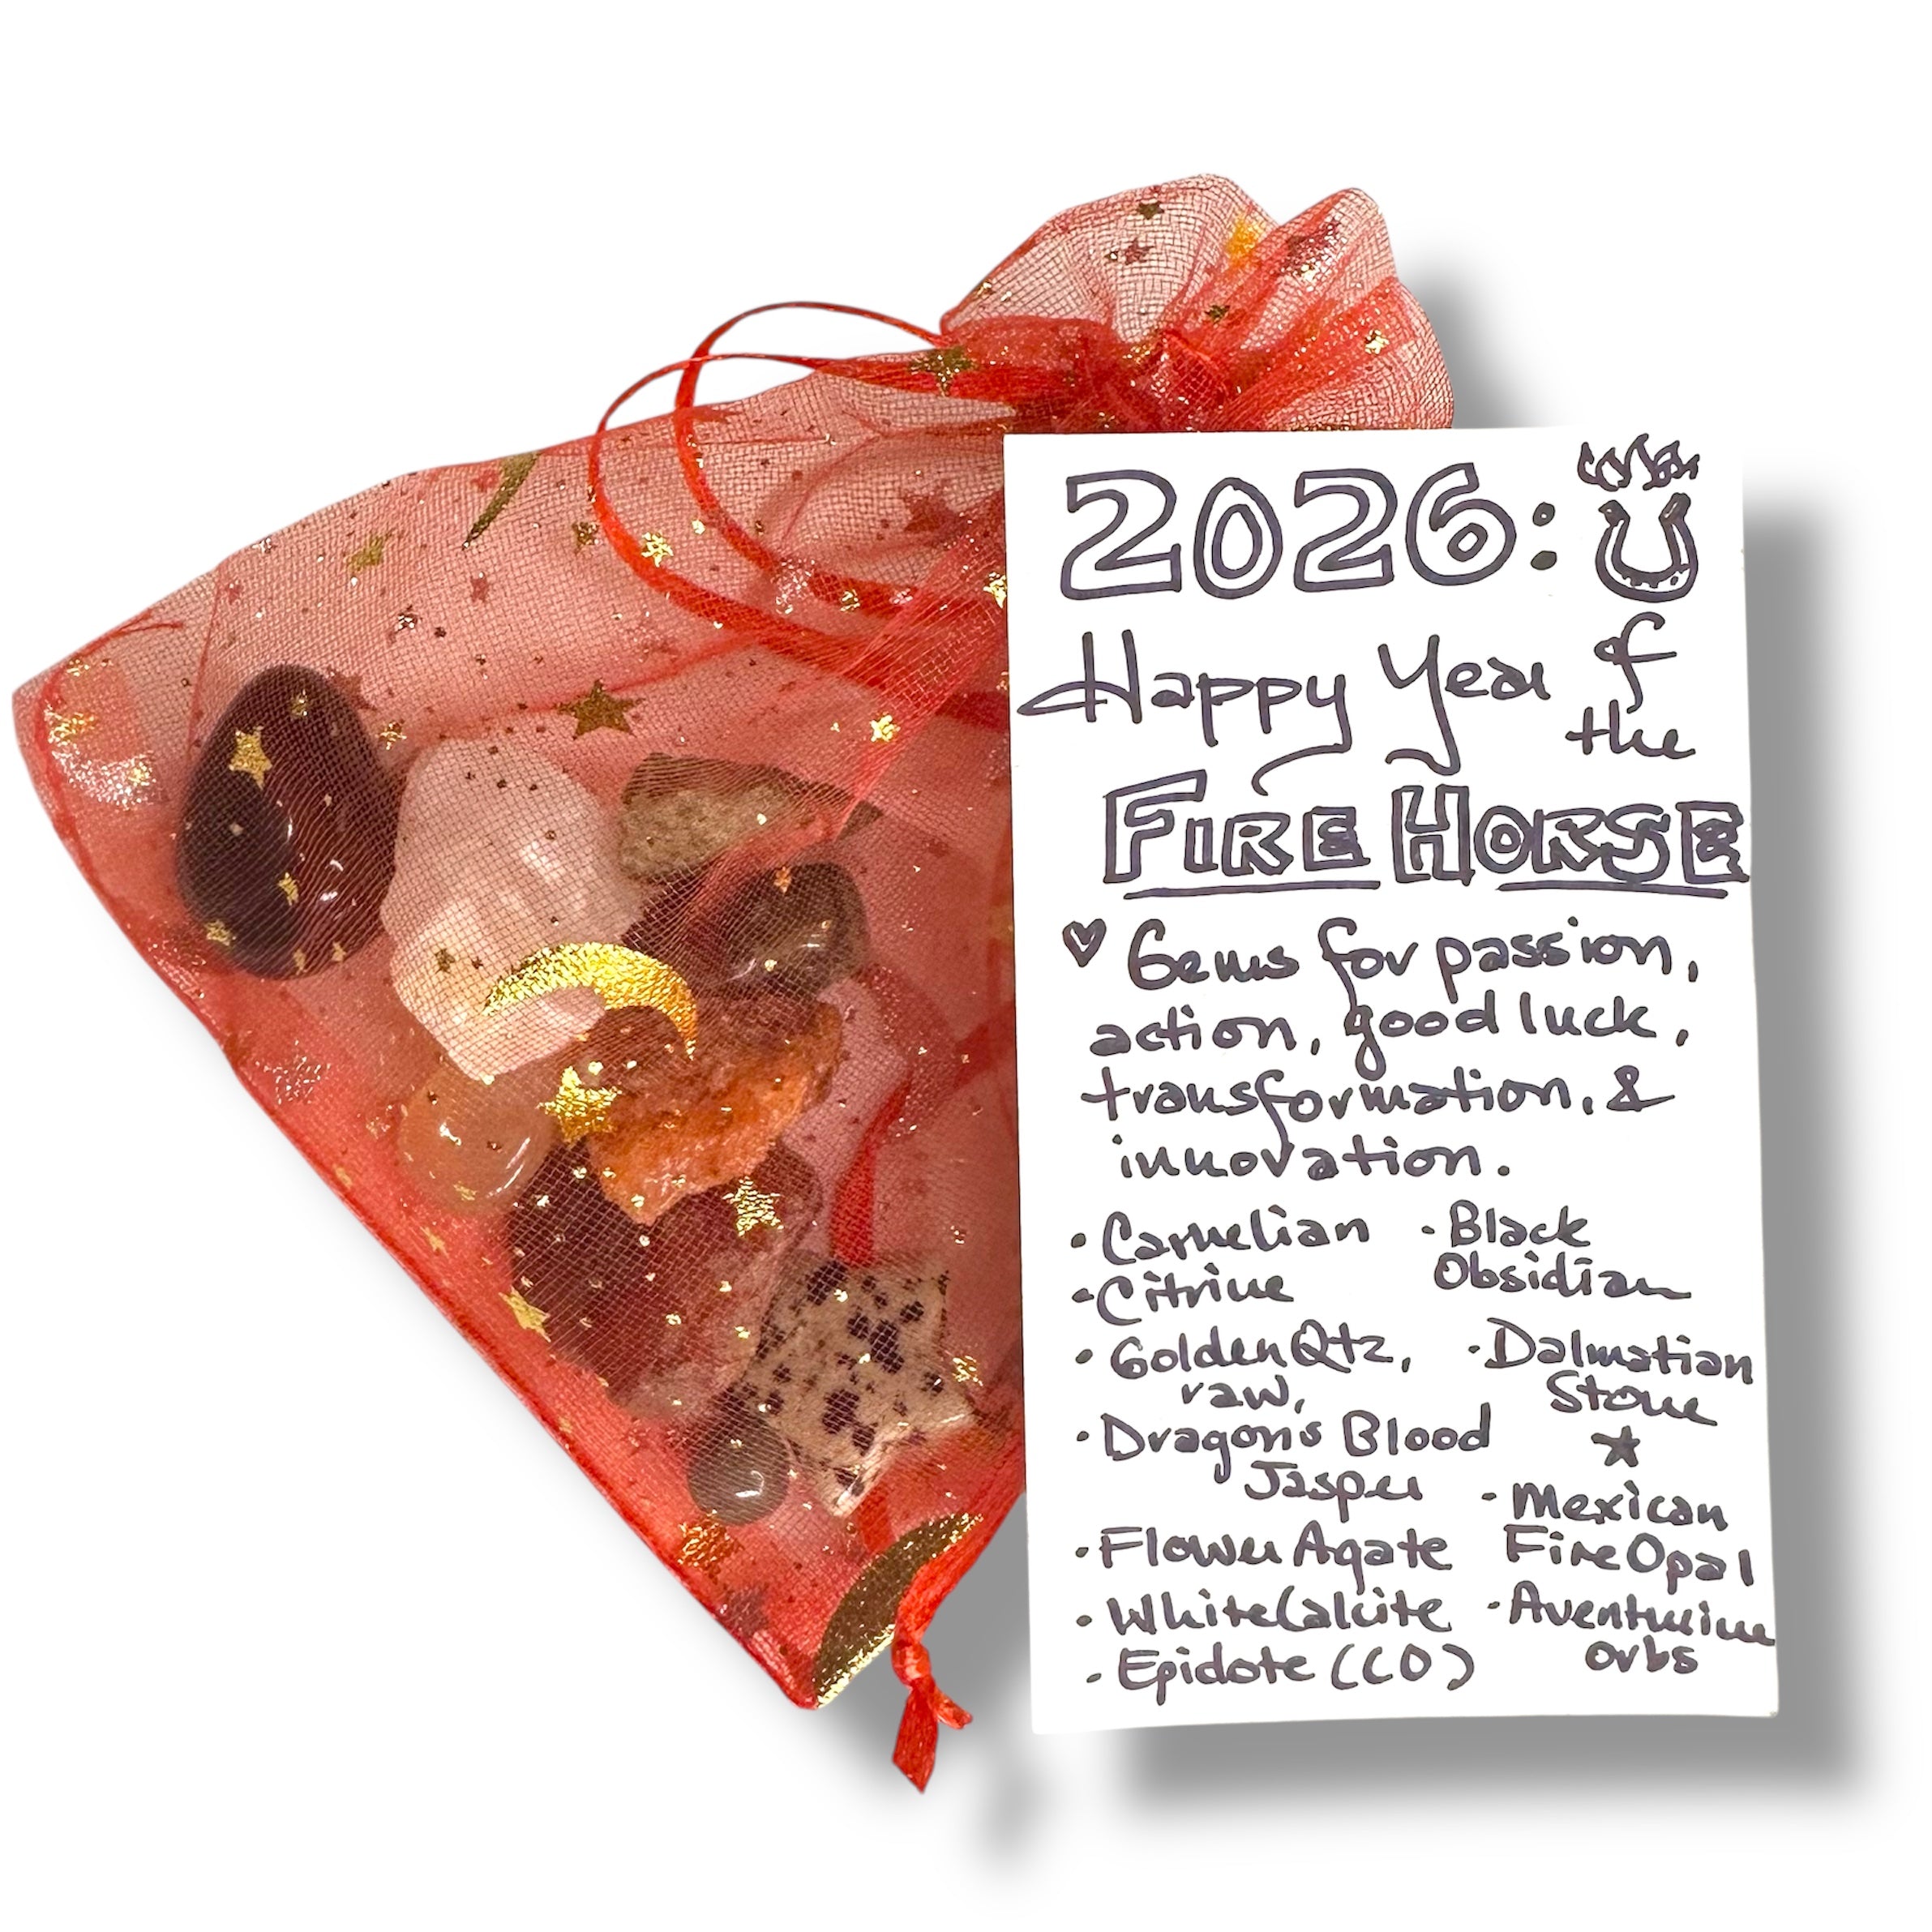 2026:
Happy Year of
the
FIRE HORSE
♡ Gems for passion,
action, good luck,
transformation, &
innovation.
• Carnelian
• Citrine
• Golden Qtz,
raw,
• Dragon's Blood
Jasper
• Flower Agate
• White Calcite
• Epidote (CO)
• Black
Obsidian
• Dalmatian
Stone
★
• Mexican
Fire Opal
• Aventurine
orbs